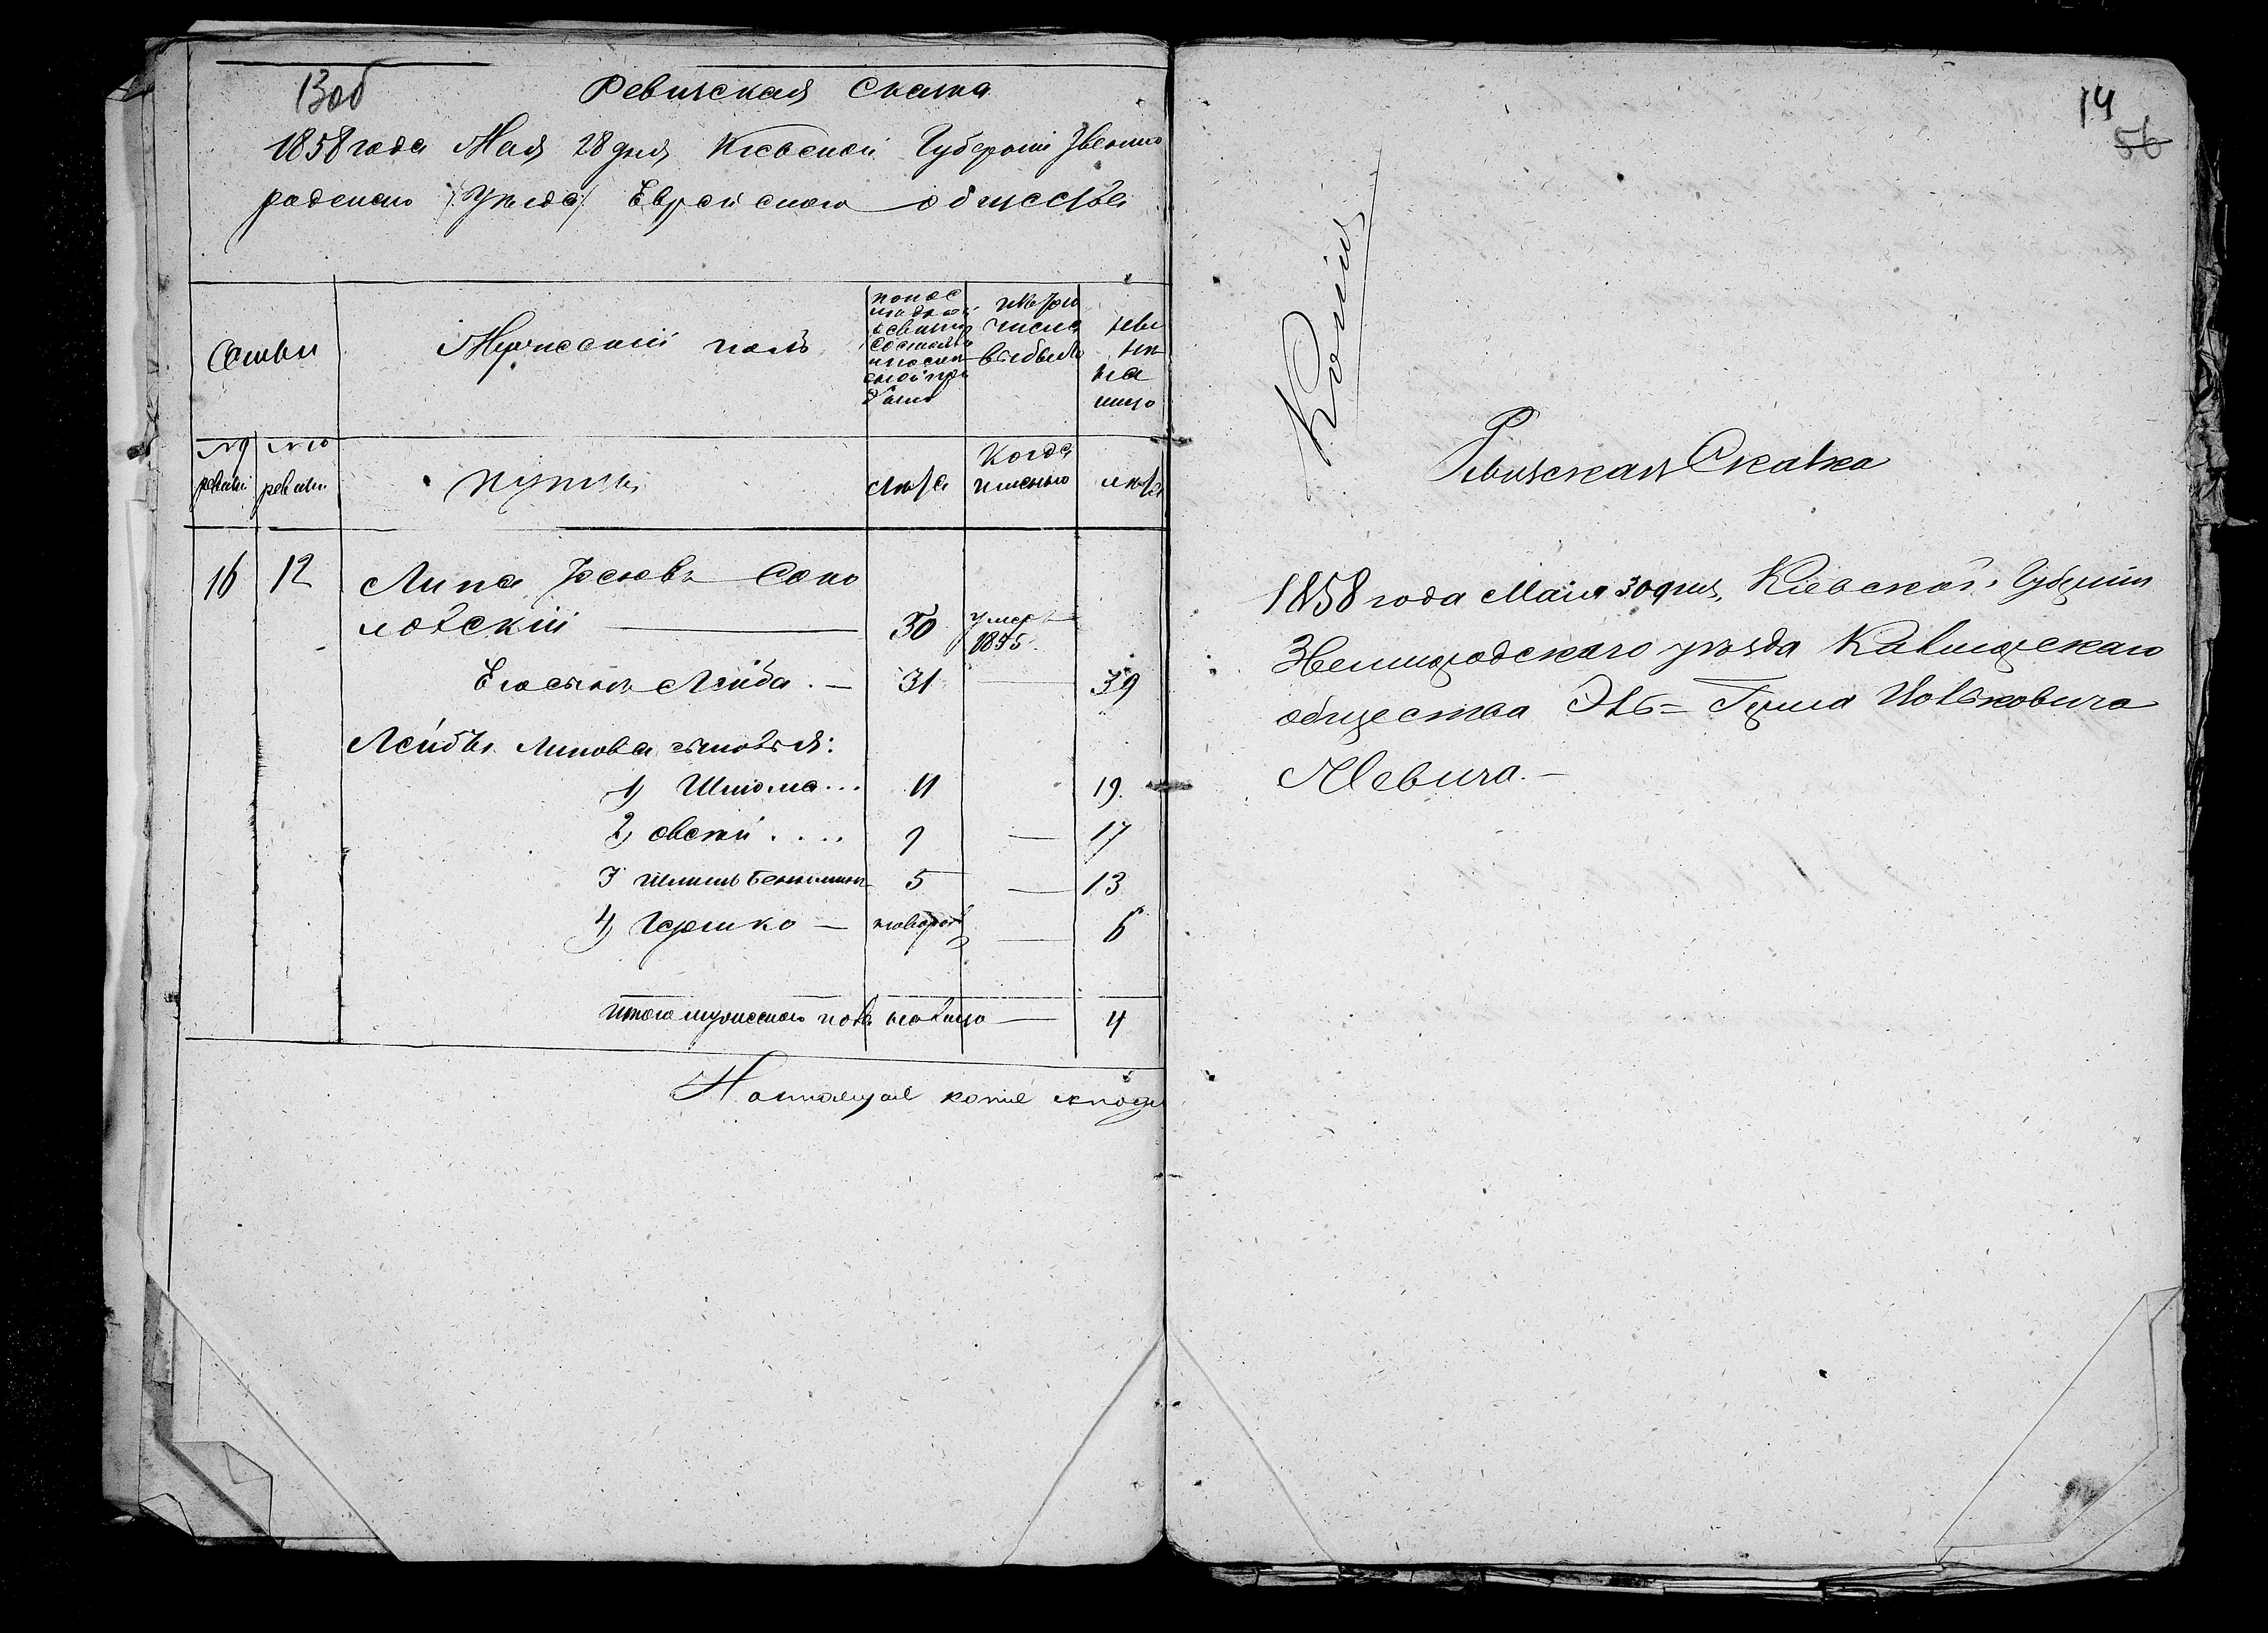 13об
Ревизская Сказка
1858 года Мая 28 дня Киевской Губернии Звениго
родского Уезда Еврейского общества
Семьи
Мужеский полъ
по пос
ледней
ревизіи
состояло
и после
оной при
было
изъ того
числа
выбыло
ны
не
на
лицо
№ 9
ревизіи
№ 10
ревизіи
Купцы
лѣта
Когда
именно
лѣта
16 12 Липа Іосіовъ Соко
ловскій — 30 умеръ
1855.
Его сынъ Лейба. — 31 — 39
Лейбы Липова сыновья:
1) Шлома... 11 19.
2) Овсей.... 9 — 17
3 Шмиль Беньяминъ 5 — 13
4) Гершко — новорож — 6
Итого мужеского пола на лицо — 4
Настоящая копія
14
56
Копія
Ревизская Сказка
1858 года Маія 30 дня, Кіевской Губерніи
Звенигородскаго уезда
общества Эль=
Левича. —